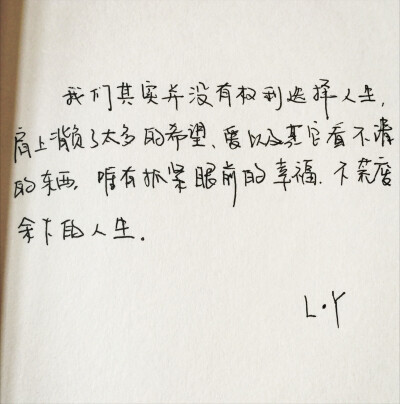 我们其实并没有权利选择人生,
肩上背负了太多的希望、爱以及其它看不清
的东西, 唯有抓紧眼前的幸福. 不荒废
余下的人生.
L.Y